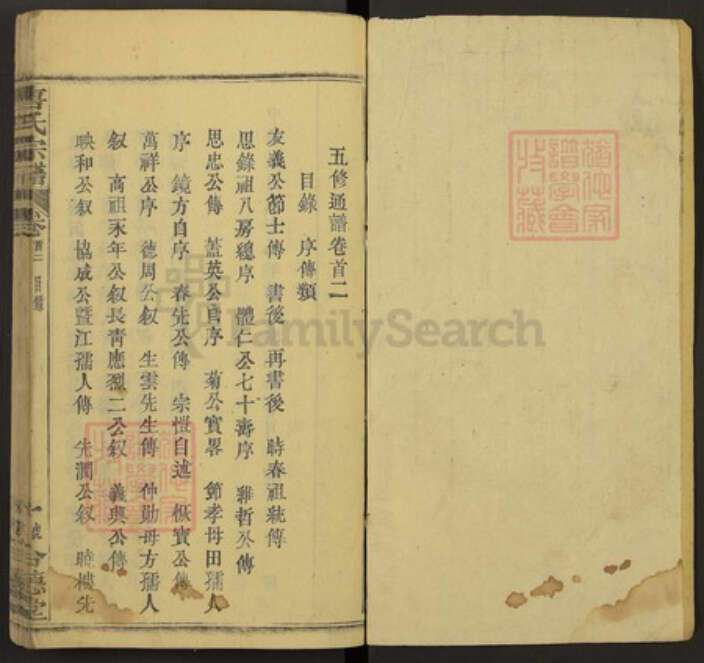 五修通譜卷首二
目錄 序傳類
友義公節士傳 書後 再書後 時春祖統傳
思錄祖八房總序 體仁公七十壽序 雞哲公傳
思忠公傳 蓋英公自序 菊公實畧 節孝母田孺人
序 鏡方自序 春先公傳 宗愷自述 公傳
萬祥公序 德周公叙 生雲先生傳 仲勤母方孺人
叙 高祖永年公叙長青應烈二公叙 義興公傳
映和公叙 協成公暨江孺人傳 先潤公叙 曉樓先
氏宗譜
卷首二 目錄
一號
道德家譜學會收藏
FamilySearch